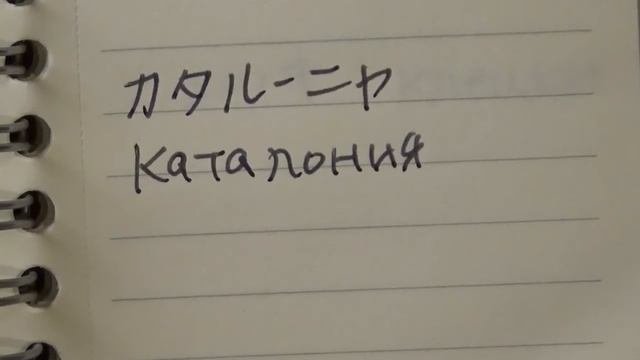 カタルーニャ
Каталония